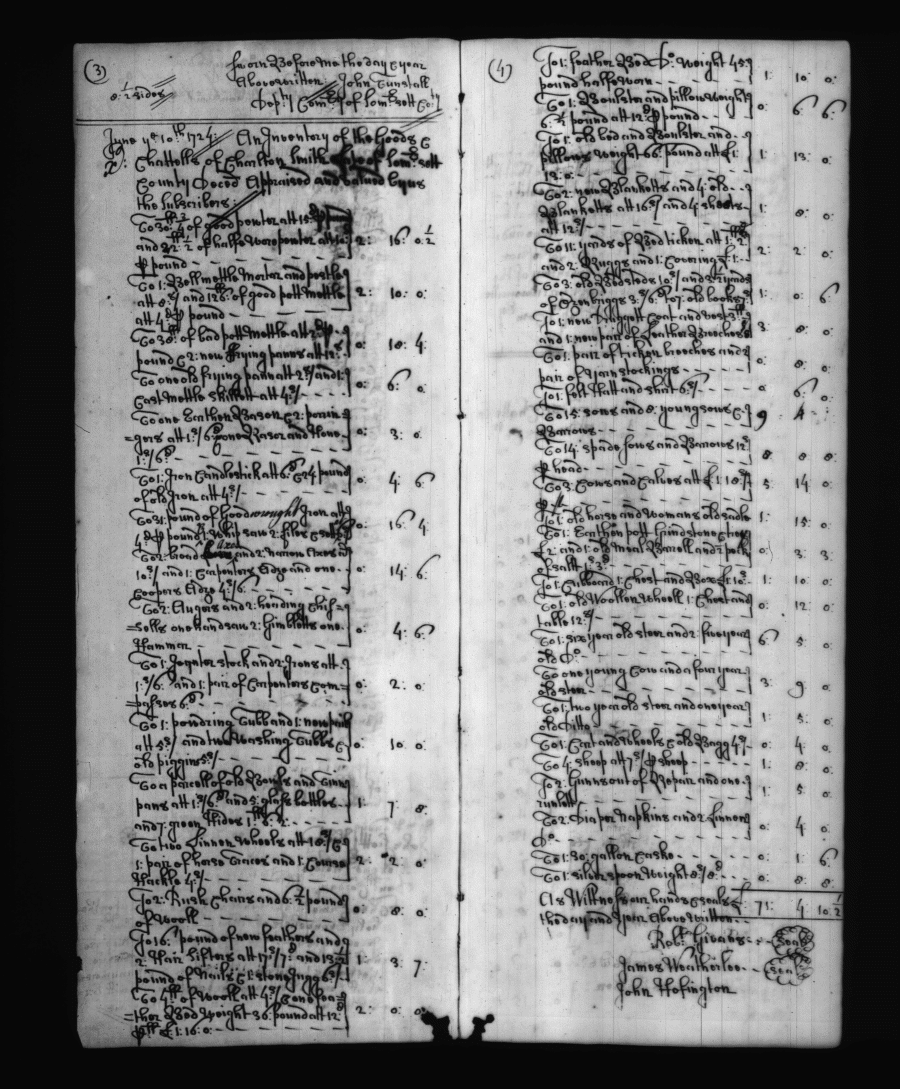 (3)
Sworn Before me the day & year
Abovewritten John Tunstall
Depty Comry of Somersett Coty
8: ½ sides
June ye 10th 1724: An Inventory of the Goods &
Chattells of Charlton Smith late of Som:sett
County Deced Appraised and valued by us
the Subscribers:
To 30: ¼ of good pewter att 15:d
and 22: ½ of halfe worne pewter att 10: 2: 16: 0:½
℔ pound
To 1: Bell mettle Mortar and pestle
att 8:s/ and 126: of good pott mettle 2: 10: 0:
att 4:d ℔ pound
To 38: of bad pott Mettle att 2:d
pound & 2: new frying panns att 12: 0: 18: 4:
To one old frying pann att 2:s/ and 1: 0: 6: 0
Cast Mettle Skillett att 4:s/
To one Earthen Bason & 2: porrin=
=gers att 1:s/6: one Razer and Hone 0: 3: 0:
1:s/6:
To 1: Iron Candlestick att 6:d & 24 pound 0: 4: 6
of old Iron att 4:s/
To 31: pound of Good wrought Iron att 0: 16: 4
4:d ℔ pound 1: Whip saw 2: files
To 2: broad Axes and 2: narrow Axes att
10:s/ and 1: Carpenters Adze and one 0: 14: 6:
Coopers Adze 4:s/6:
To 2: Augers and 2: heading Chis=
=sells one handsaw 2: Gimbletts one 0: 4: 6:
Hammer
To 1: Joynter stock and 2: Irons att
1:s/6: and 1: pair of Carpenters Com= 0: 2: 0:
=passes 6:d
To 1: powdring Tubb and 1: new pail
att 5:s/ and two Washing Tubbs & 0: 10: 0:
old piggins 5:s/
To a parcell of old Bowls and Tinn
pans att 1:s/6: and 5: glass bottles 1: 7: 8:
and 7: green Hides
To two Linnen Wheels att 18:s/ &
1: pair of horse Traces and 1: Course 2: 2: 0:
Hackle 4:s/
To 2: Rush Chairs and 6: ½ pound 0: 8: 0:
of Wooll
To 16: pound of new feathers and
2: Hair Sifters att 17:s/7: and 13: ½ 1: 3: 7:
pound of Nails & 1: stone Jugg 6:
To 4 of Wooll att 4:s/ & one fea=
=ther Bed Weight 36: pound att 12: 2: 0: 0:
℔ £ 1: 16: 0:
(4)
To 1: feather Bed Do: Weight 45: 1: 10: 0:
pound halfe worn
To 1: Boulster and pillow Weight 0: 6: 6:
6: ½ pound att 12:d ℔ pound
To 1: old bed and Boulster and
pillows Weight 66: pound att £1: 1: 13: 0:
13: 0:
To 2: new Blanketts and 4: old
Blanketts att 16:s/ and 4: Sheets 1: 8: 0:
att 12:s/
To 11: yards of Bed ticken att 1: 2
and 2: Ruggs and 1: Covering £1: 2: 2: 0:
To 3: old Bedsteds 10:s/ and 3: ½ yards
of Ozenbriggs 3:s/6: 7: old books 7: 1: 0: 6
To 1: new Druggett Coat and vest
and 1: new pair of Leather Breeches 3: 8: 0:
To 1: pair of ticken breeches and 2
pair of yarn stockings 0: 8: 0:
To 1: felt Hatt and shirt 6:s/ 0: 6: 0:
To 15: sows and 8: young sows & 9 4 :
Barrows
To 14: spade sows and Barrows 12:s 8: 8: 0:
℔ head
To 3: Cows and Calves att £1: 18:s/ 5: 14 0:
℔
To 1: old horse and Womans old sadle 1: 15: 0:
To 1: Earthen pott Grindstone
2: and 1: old Meal Barrell and 2 peck 0: 3: 3
of salt 1: 3:
To 1: Cubboard 1: Chest and Box £1: 10: 1: 10: 0:
To 1: old Woollen Wheell 1: Chest and 0: 12: 0:
table 12:s/
To 1: six year old steer and 2: five year 6: 5: 0:
old Do
To one young Cow and a four year 3: 9: 0:
old steer
To 1: two year old steer and one year 1: 5: 0:
old Ditto
To 1: Cart and Wheels & old Bagg 4:s/ 0: 4: 0:
To 4: sheep att 7:s/ ℔ sheep 1: 8: 0:
To 2: Gunns out of Repair and one 1: 5: 0:
runlett
To 2: Diaper Napkins and 2: Linnen 0: 4 0:
Do
To 1: 30: gallon Caske 0: 1: 6:
To 1: silver spoon Weight 8:s/8: 0: 8: 8:
As Witness our hands & seals £ 71: 4 10: ½
the day and year Above written
Robt Givans Seal
James Weatherlee Seal
John Hofington